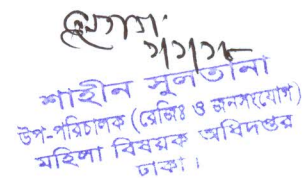 শাহীন সুলতানা
উপ-পরিচালক (রেজিঃ ও জনসংযোগ)
মহিলা বিষয়ক অধিদপ্তর
ঢাকা।